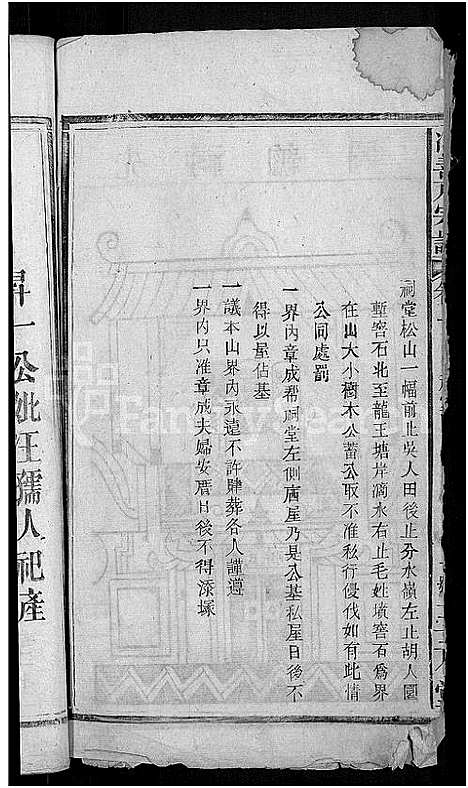 祠堂松山一幅前止吳人田後止分水嶺左止胡人園
塹窖石北至龍王塘岸滴水右止毛姓墳窖石為界
在山大小樹木公蓄公取不准私行侵伐如有此情
公同處罰
一界內章成帮祠堂左側廂屋乃是公基私屋日後不
得以屋佔基
一議本山界內永遠不許肆葬各人謹遵
一界內只准章成夫婦安厝日後不得添塚
昇一公妣王孺人祀產